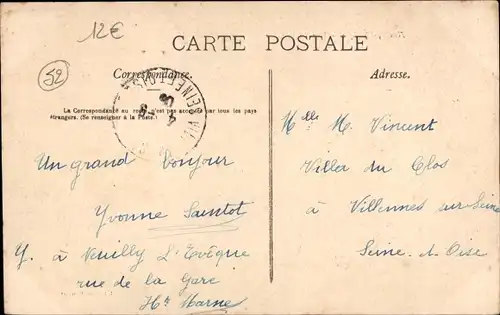 12€
CARTE POSTALE
52
Correspondance.
Adresse.
La Correspondance au recto n'est pas acceptée par tous les pays
étrangers. (Se renseigner à la Poste.)
Un grand Bonjour
Yvonne Saintot
Y. à Neuilly L'Evêque
rue de la Gare
Hte Marne
Melle M. Vincent
Villa du Clos
à Villennes sur Seine
Seine. et. Oise